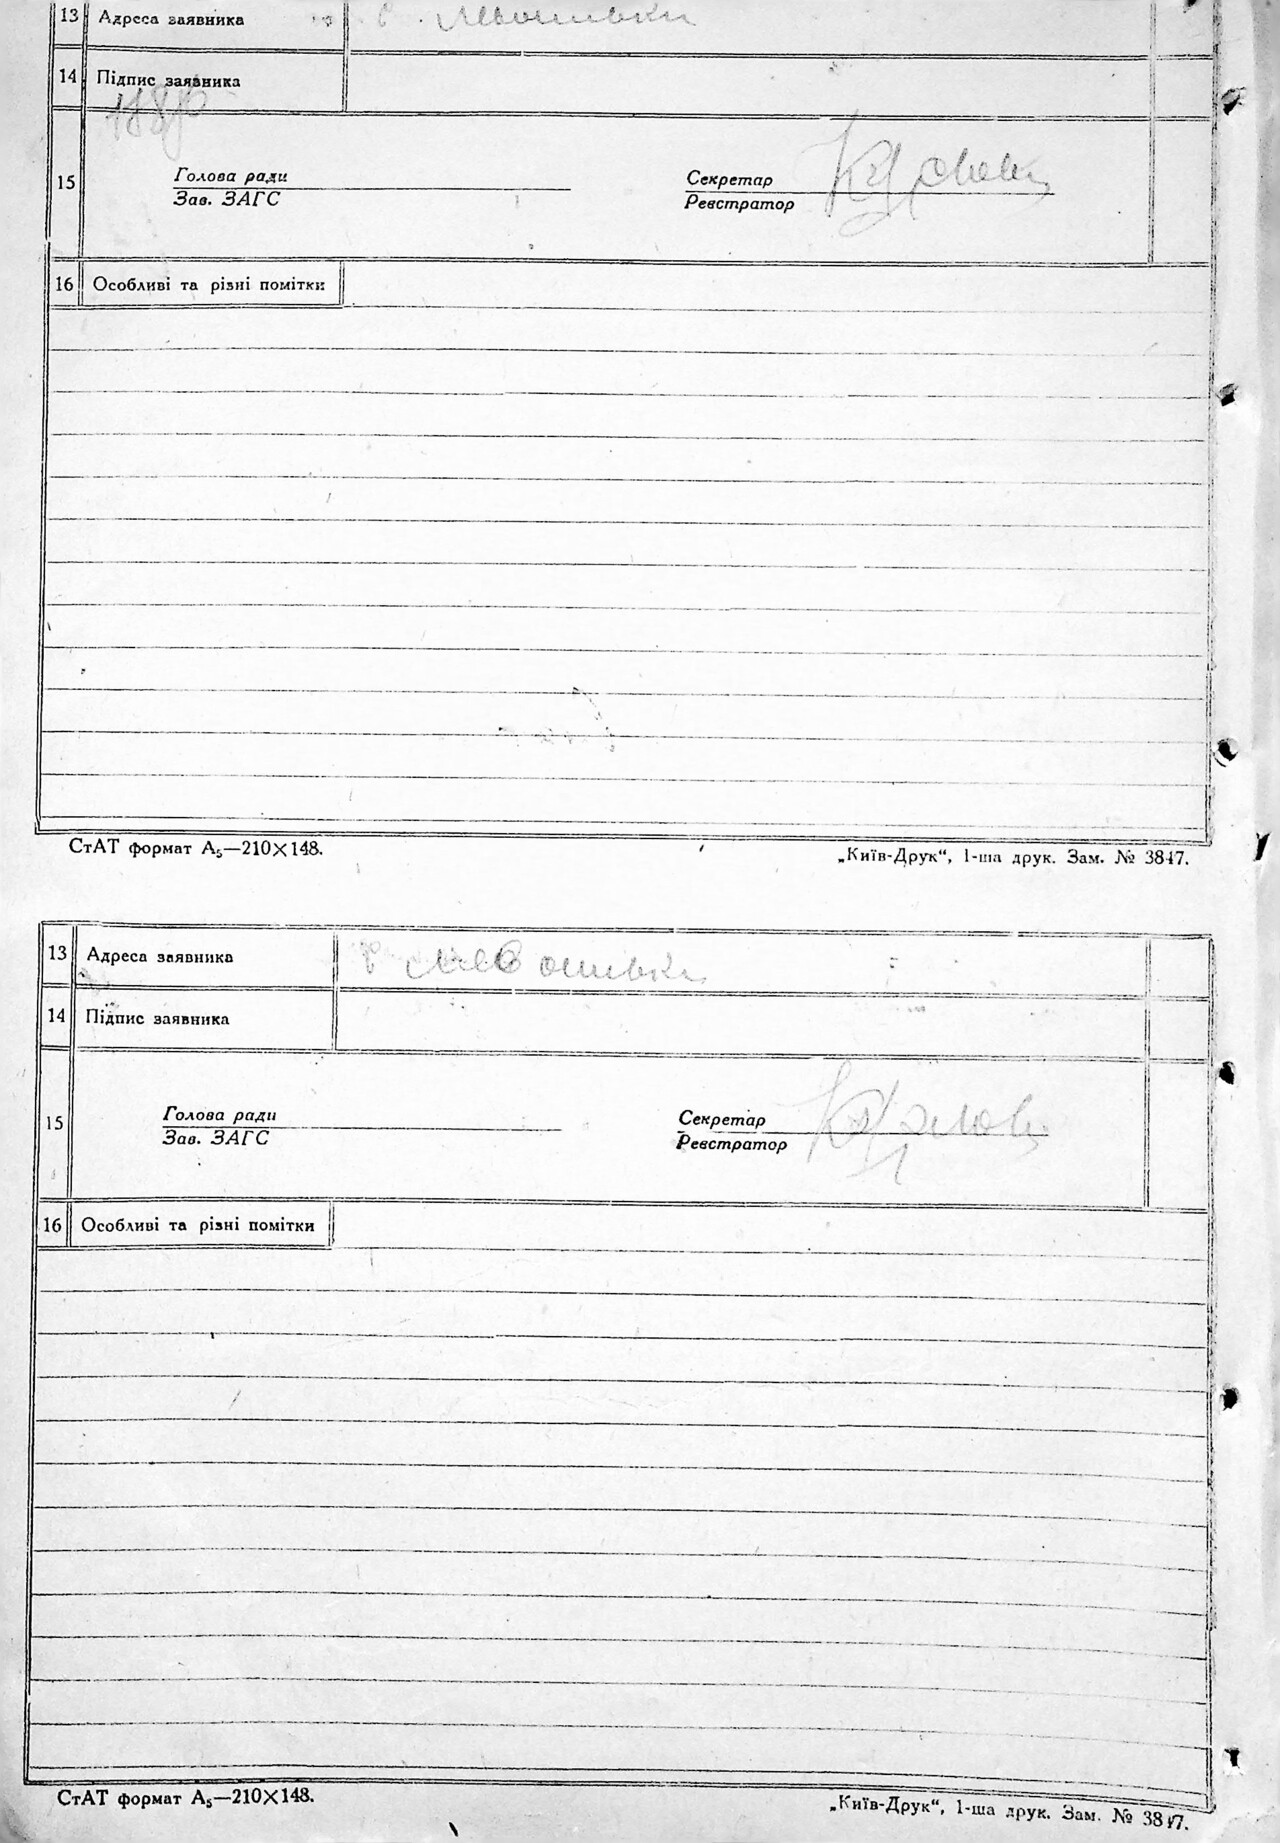 13 Адреса заявника с. Левошивки
14 Підпис заявника
15
Голова ради
Зав. ЗАГС
Секретар
Реєстратор
16 Особливі та різні помітки
СтАТ формат А₅—210×148.
„Київ-Друк“, 1-ша друк. Зам. № 3847.
13 Адреса заявника с Левошивки
14 Підпис заявника
15
Голова ради
Зав. ЗАГС
Секретар
Реєстратор
16 Особливі та різні помітки
СтАТ формат А₅—210×148.
„Київ-Друк“, 1-ша друк. Зам. № 3847.